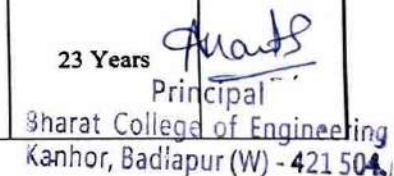 23 Years
Principal
Bharat College of Engineering
Kanhor, Badlapur (W) - 421 504.